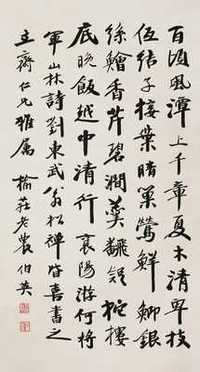 百頃風潭上千章夏木清卑枝
低結子接葉暗巢鶯鮮鯽銀
絲鱠香芹碧澗羹翻疑柁樓
底晚飯越中清行襄陽游何將
軍山林詩劉東武翁松禪皆喜書之
立齋仁兄雅屬 榆莊老農伯英